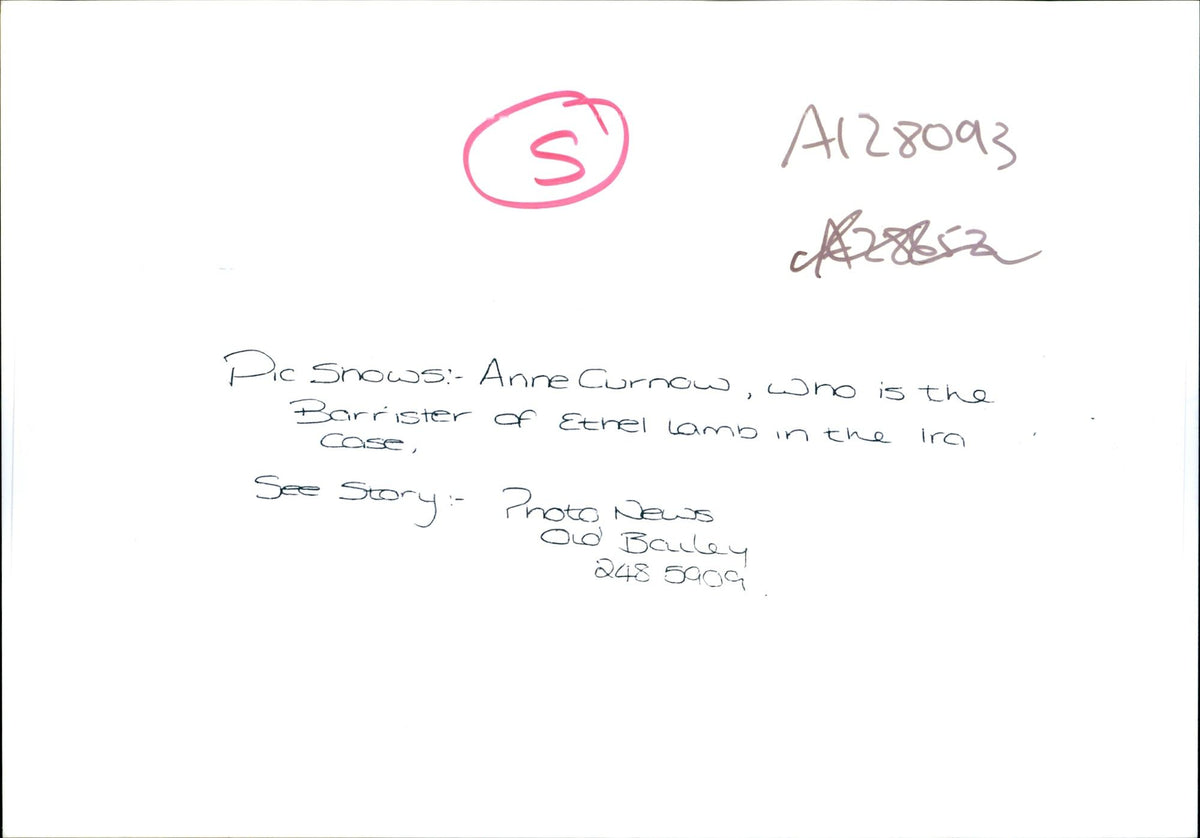 S
A128093
Pic Shows:- Anne Curnow, who is the
Barrister of Ethel Lamb in the Ira
Case,
See Story:- Photo News
Old Bailey
248 5909